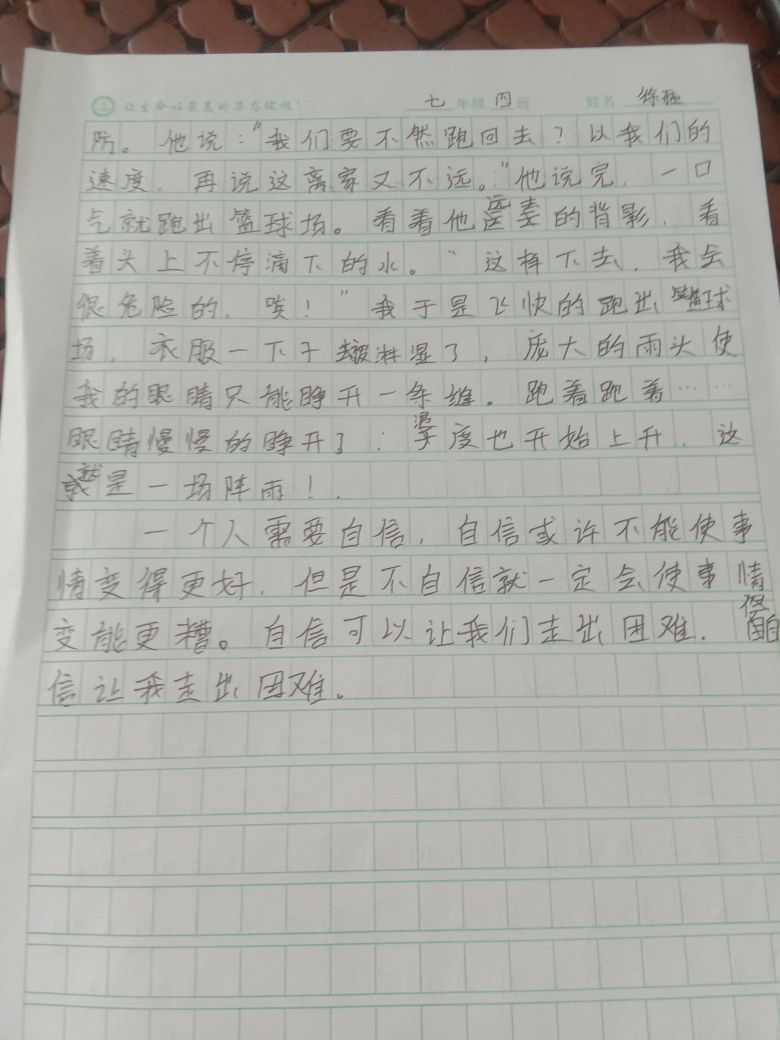 让生命以最美的姿态绽放！ 七年级四班 姓名
防。他说："我们要不然跑回去？以我们的
速度，再说这离家又不远。"他说完，一口
气就跑出篮球场。看着他远去的背影，看
着头上不停滴下的水。"这样下去，我会
很危险的，唉！"我于是飞快的跑出篮球
场，衣服一下子被淋湿了，庞大的雨头使
我的眼睛只能睁开一条缝。跑着跑着……
眼睛慢慢的睁开了；温度也开始上升，这
就是一场阵雨！.
一个人需要自信，自信或许不能使事
情变得更好，但是不自信就一定会使事情
变能更糟。自信可以让我们走出困难．保自
信让我走出困难。